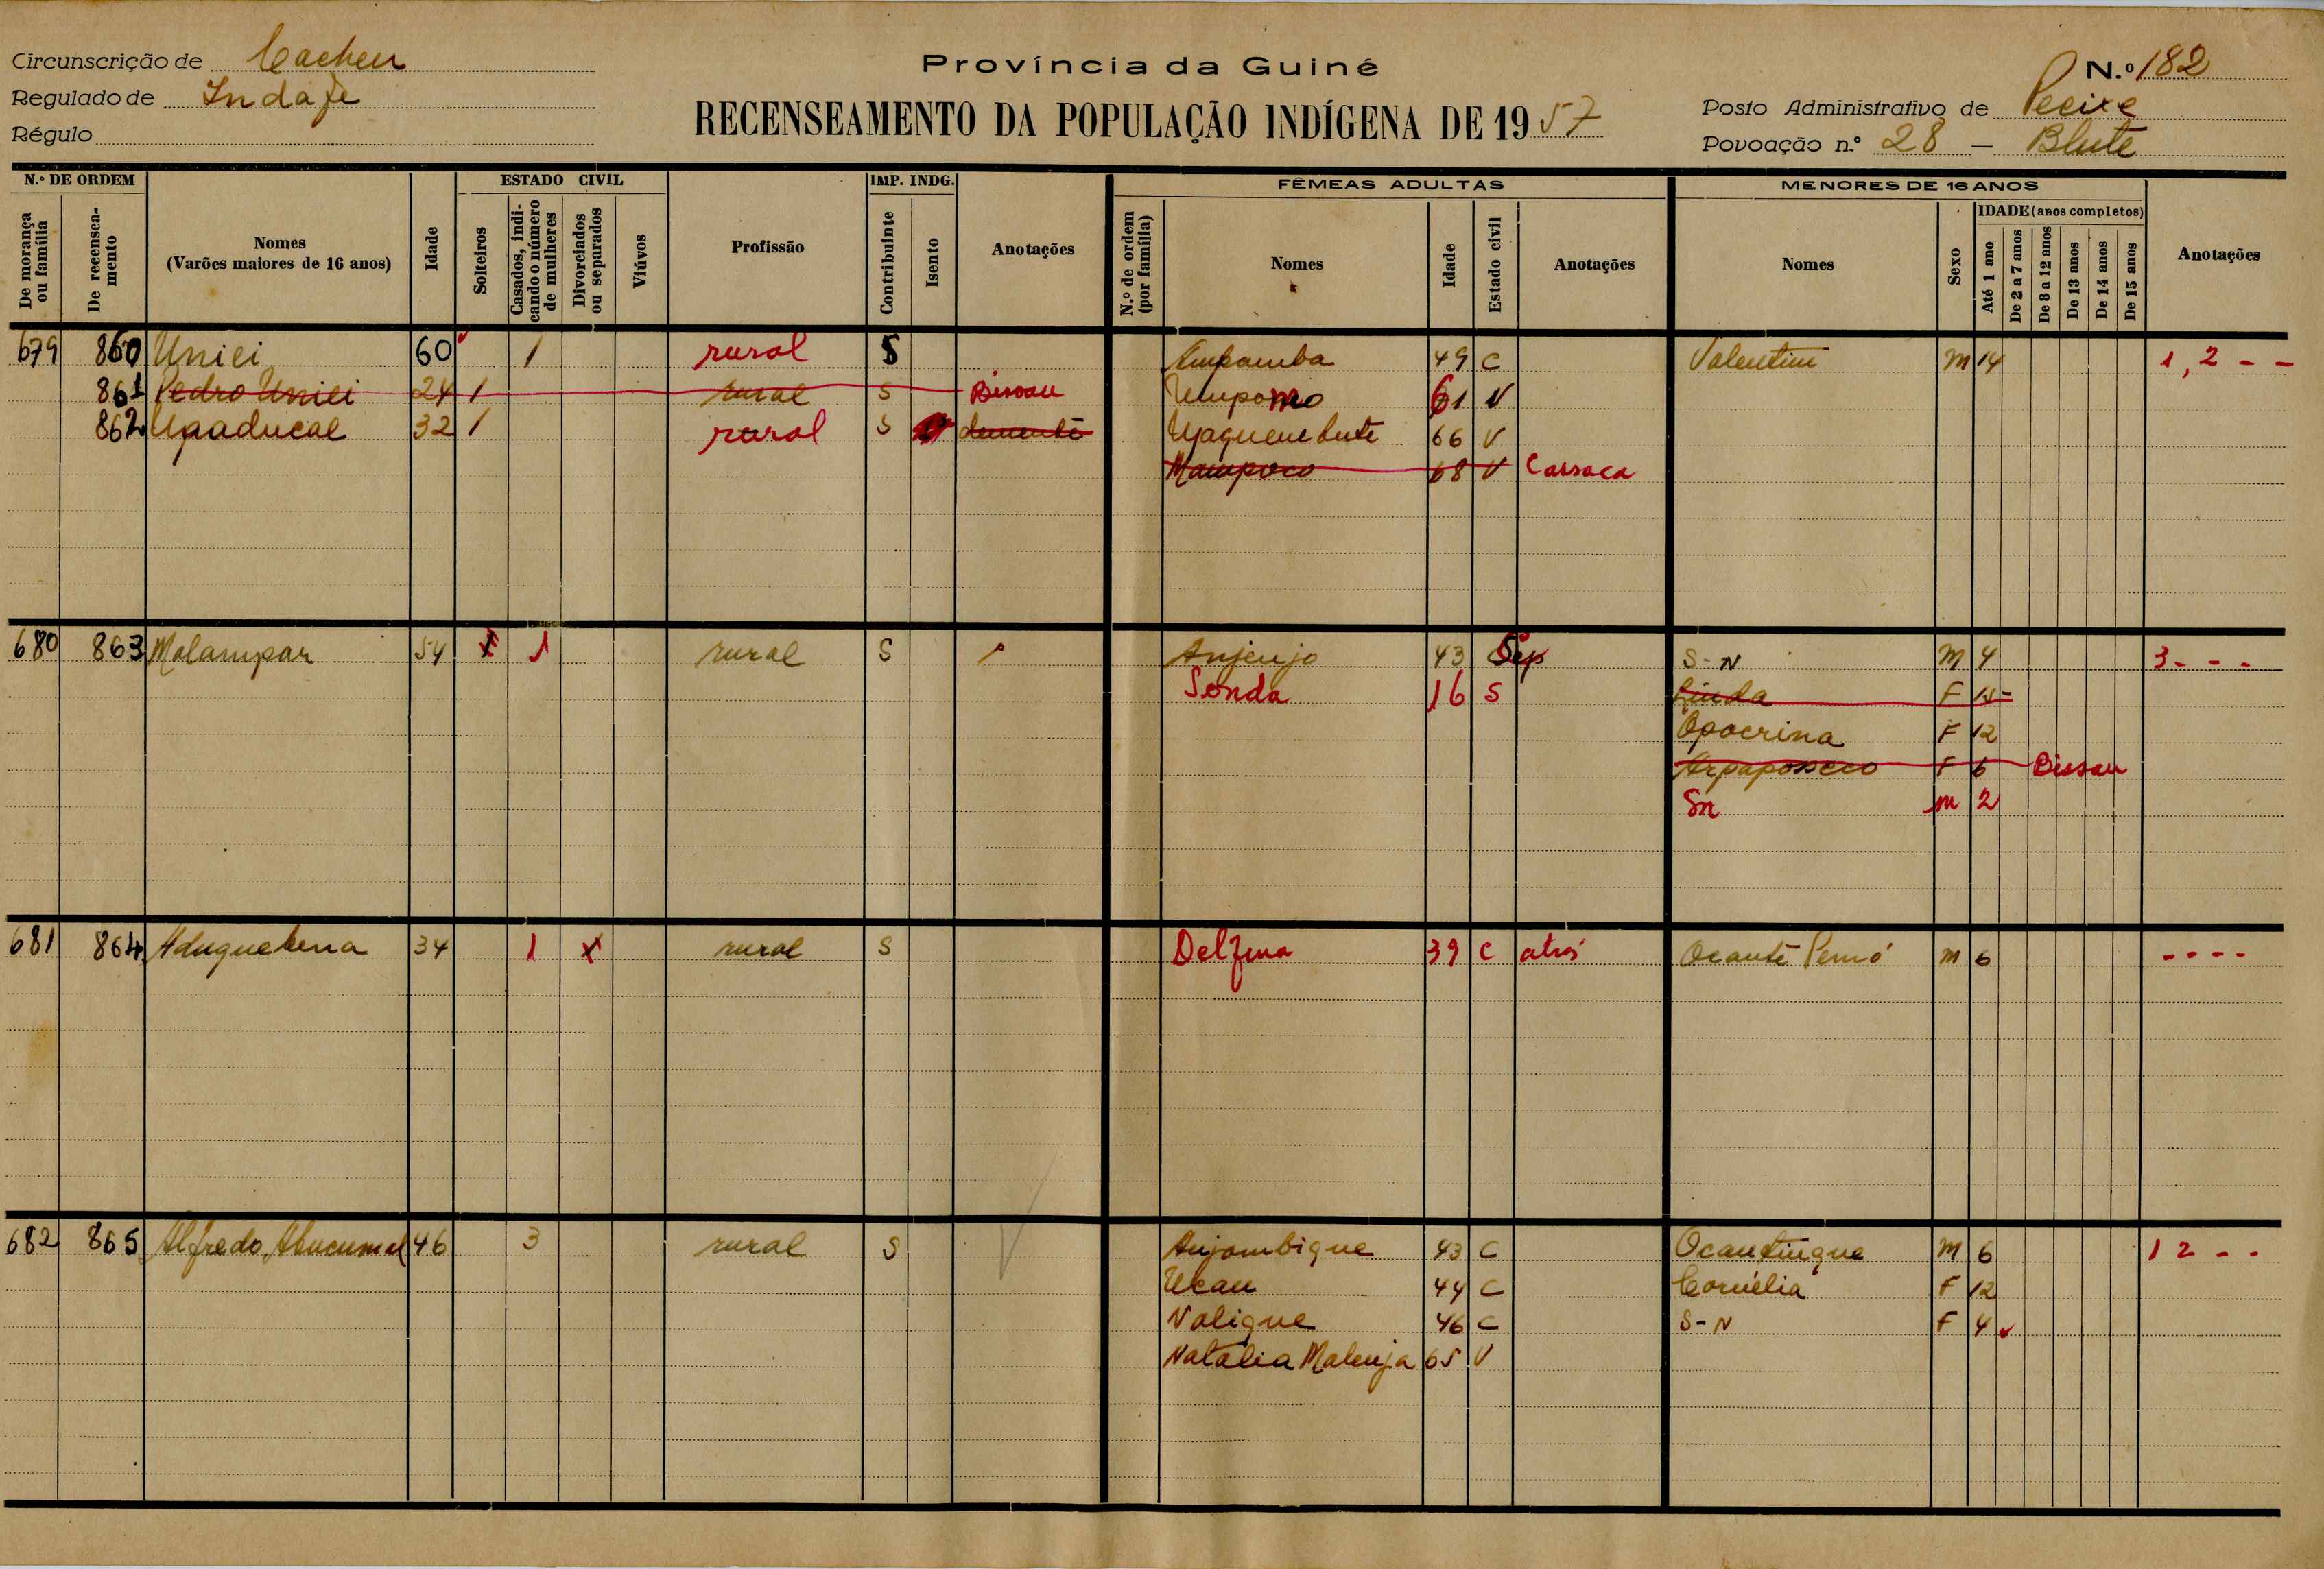 Circunscrição de Cacheu
Regulado de Indafe
Régulo
Província da Guiné
RECENSEAMENTO DA POPULAÇÃO INDÍGENA DE 1957
N.º 182
Posto Administrativo de Pecixe
Povoação n.º 28 — Blute
N.º DE ORDEM
De morança ou família
De recenseamento
Nomes
(Varões maiores de 16 anos)
Idade
ESTADO CIVIL
Solteiros
Casados, indicando o número de mulheres
Divorciados ou separados
Viúvos
Profissão
IMP. INDG.
Contribuinte
Isento
Anotações
FÊMEAS ADULTAS
N.º de ordem (por família)
Nomes
Idade
Estado civil
Anotações
MENORES DE 16 ANOS
Nomes
Sexo
IDADE (anos completos)
Até 1 ano
De 2 a 7 anos
De 8 a 12 anos
De 13 anos
De 14 anos
De 15 anos
Anotações
679 860 Uniei 60 1 rural S Empamba 49 C Valentim M 14 1, 2 - -
861 Pedro Uniei 24 1 rural S Bissau Umpomo 61 V
862 Upaducal 32 1 rural S demente 66 V
Mampoco 68 V Carsaca
680 863 Malampar 54 1 rural S Anjenjo 43 Sep S-N M 4 3 - - -
Sonda 16 S F 15
Opocrina F 12
F 6 Bissau
Sn M 2
681 864 Aduquebena 34 1 rural S Delfina 39 C Ocante M 6 - - - -
682 865 Alfredo 46 3 rural S Anjombique 43 C Ocantingue M 6 1 2 - -
Ucau 44 C Cornélia F 12
Nalique 46 C S-N F 4
Natalia Malenja 65 V